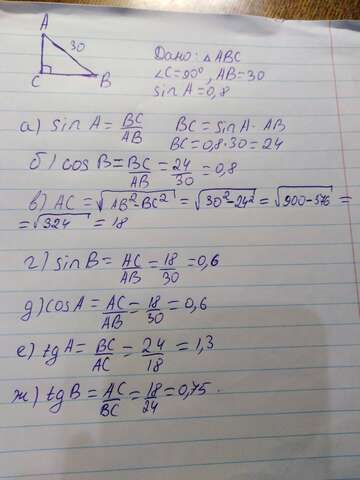 A
30
C
B
Дано: △ABC
∠C=90°, AB=30
sin A=0,8
а) sin A = BC/AB BC = sin A · AB
BC = 0,8·30 = 24
б) cos B = BC/AB = 24/30 = 0,8
в) AC = √AB²-BC² = √30²-24² = √900-576 =
= √324 = 18
г) sin B = AC/AB = 18/30 = 0,6
д) cos A = AC/AB = 18/30 = 0,6
е) tg A = BC/AC = 24/18 = 1,3
ж) tg B = AC/BC = 18/24 = 0,75.